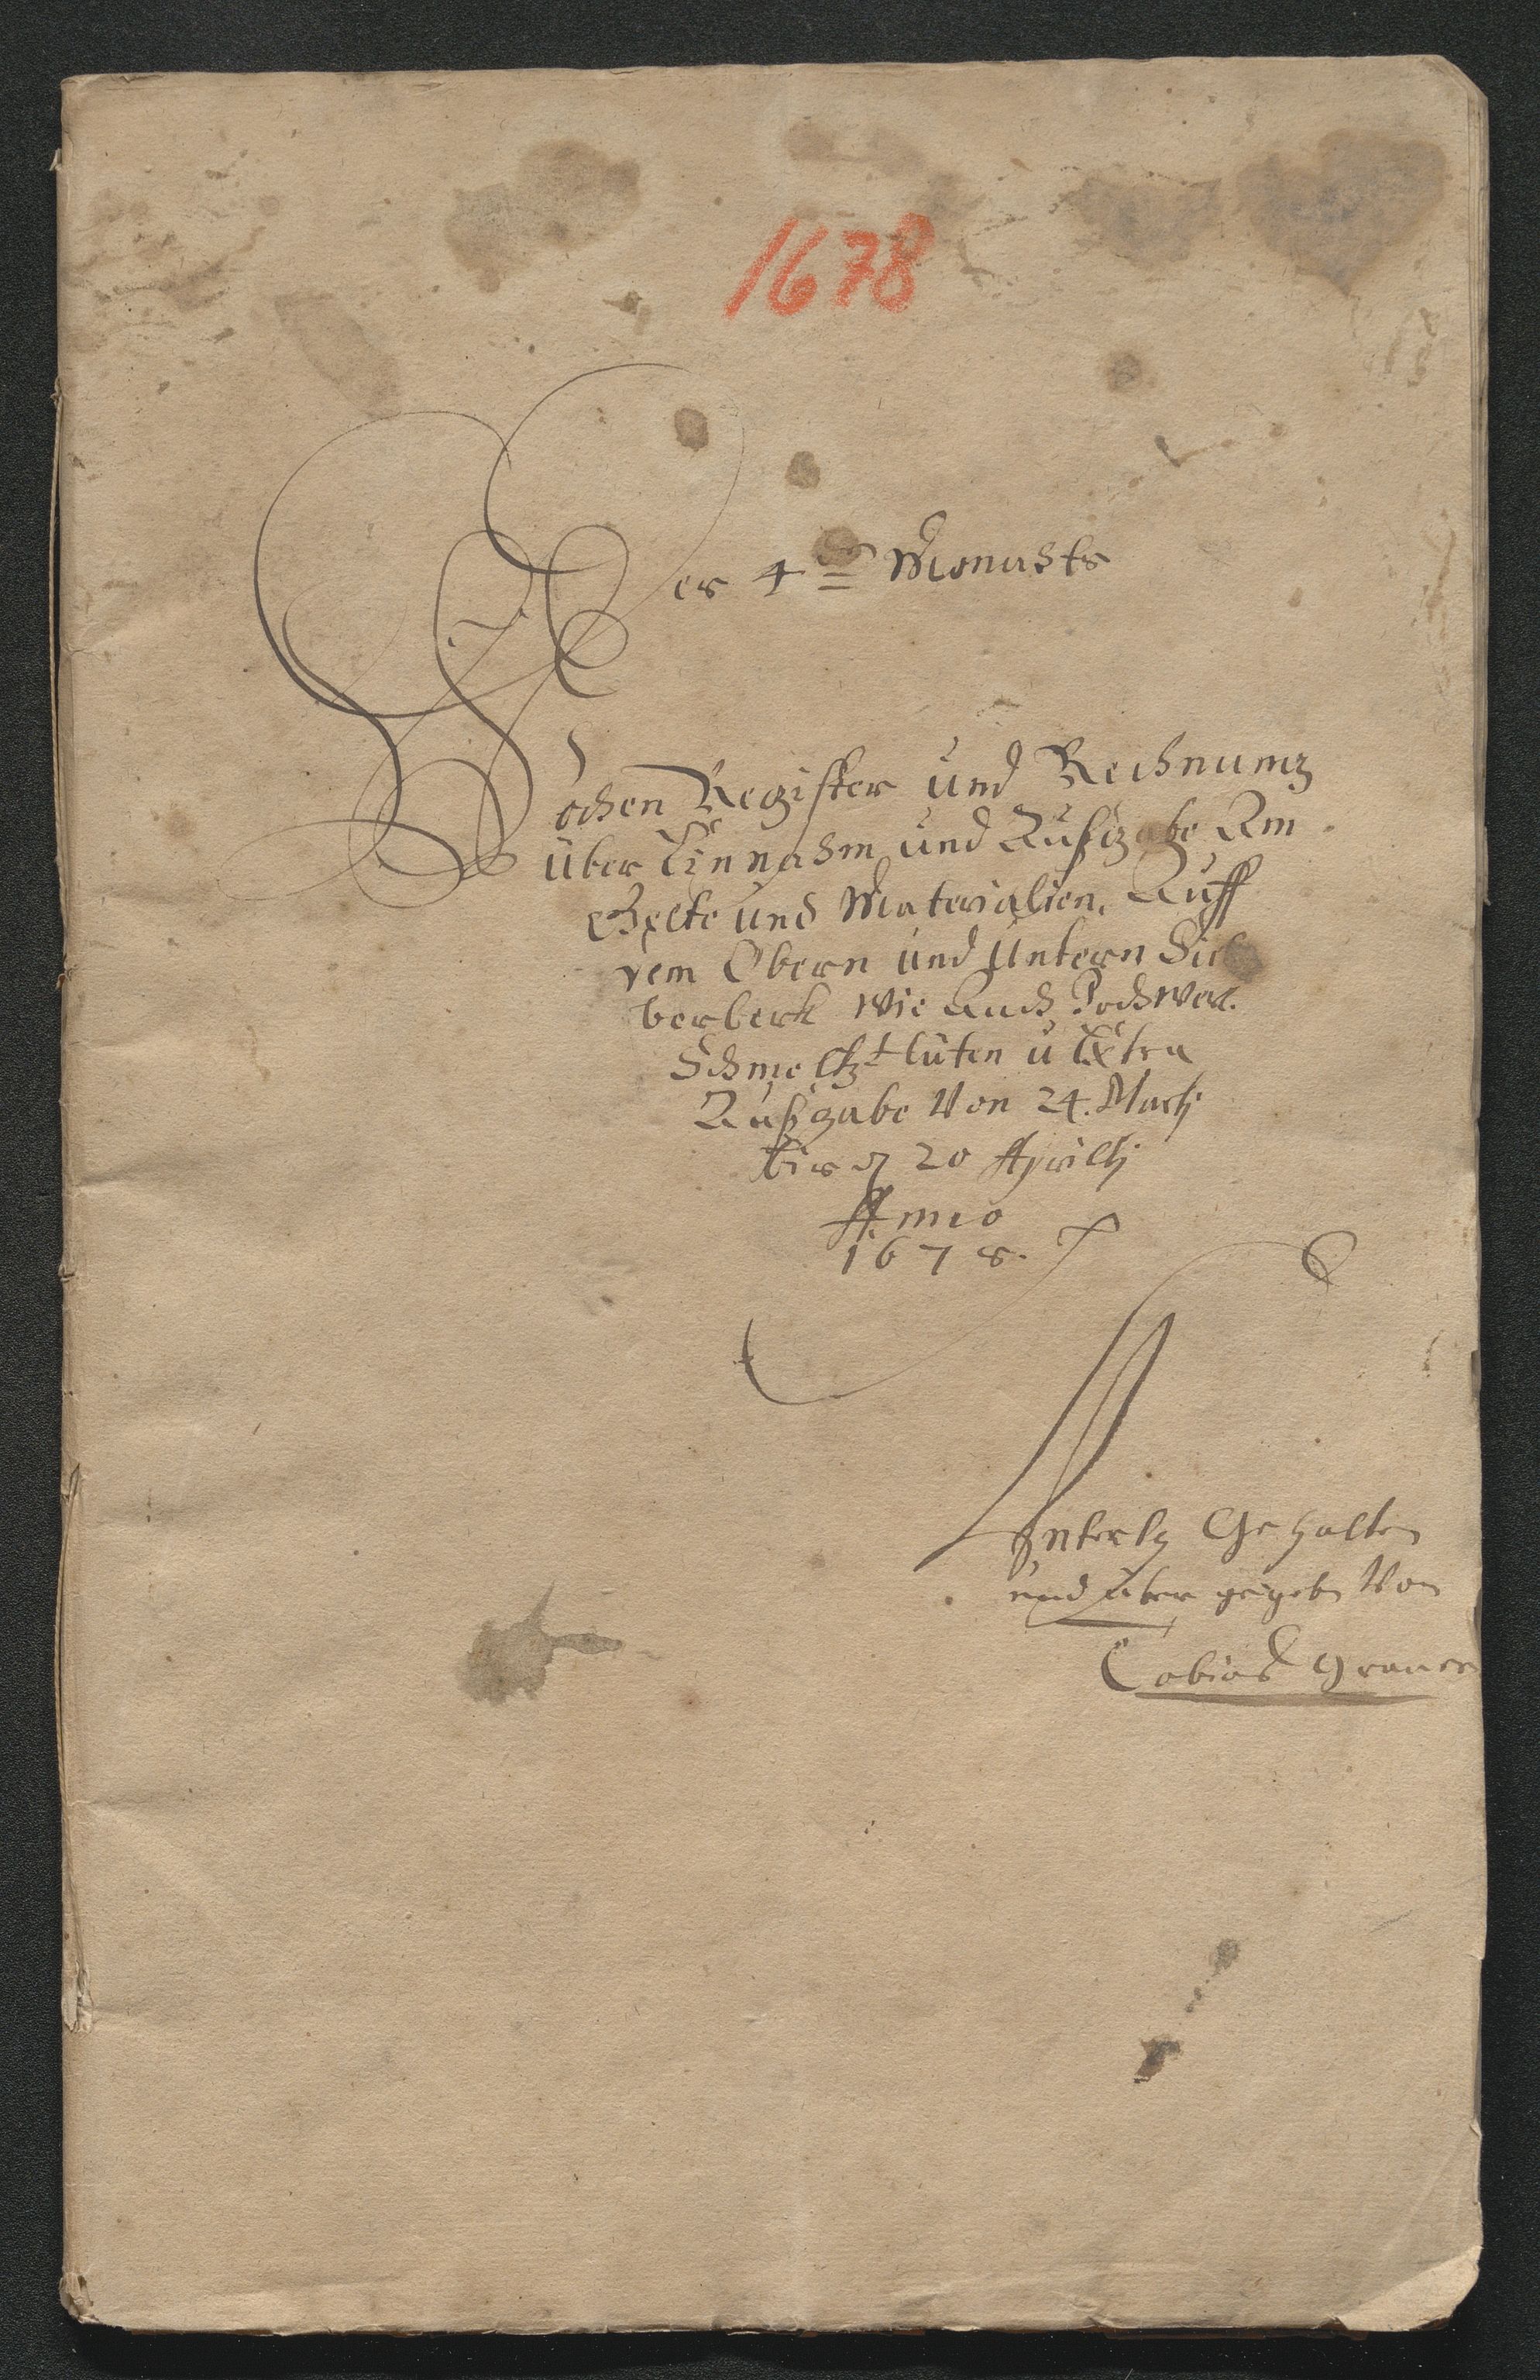 1678
Des 4ten Monahts
Wochen Register und Rechnung
über Einnahm und Außgabe Am
Gelte und Materialien, Auff
dem Obern und Untern Sil
berberk wie Auch Pochwer.
Schmeltz hüten u Extra
Außgabe Von 24. Marti
bis d 20 Aprilli
Anno
1678.
Gehalten
und über gegeben Von
Tobias